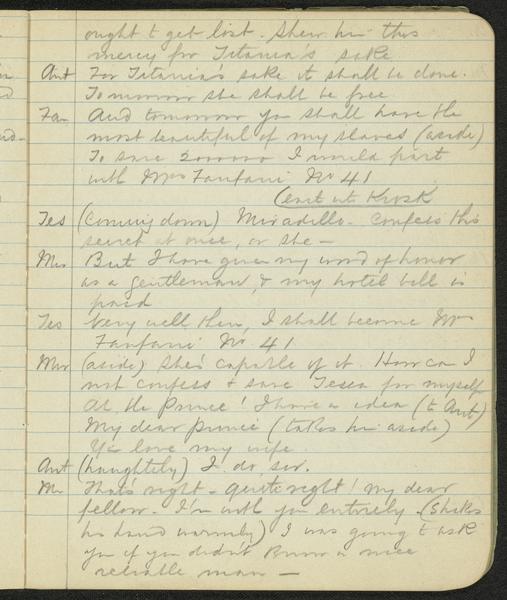 ought to get lost. Shew him this
mercy for Titania's sake
Ant For Titania's sake it shall be done.
Tomorrow she shall be free
Fan And tomorrow you shall have the
most beautiful of my slaves (aside)
To save 200000 I would part
with Mrs Fanfani No 41
(exit with Kiosk
Tes (Coming down) Miradillo - Confess this
secret at once, or she —
Mir But I have given my word of honor
as a gentleman & my hotel bill is
paid
Tes Very well then, I shall become Mrs
Fanfani No. 41
Mir (aside) She's capable of it. How can I
not confess & save Tesea for myself
Ah, the Prince! I have a idea (to Ant)
My dear prince (takes him aside)
You love my wife.
Ant (haughtely) I do, sir.
Mir That's right - quite right! my dear
fellow. I'm with you entirely. (Shakes
his hand warmly) I was going to ask
you if you didn't know a nice
reliable man —